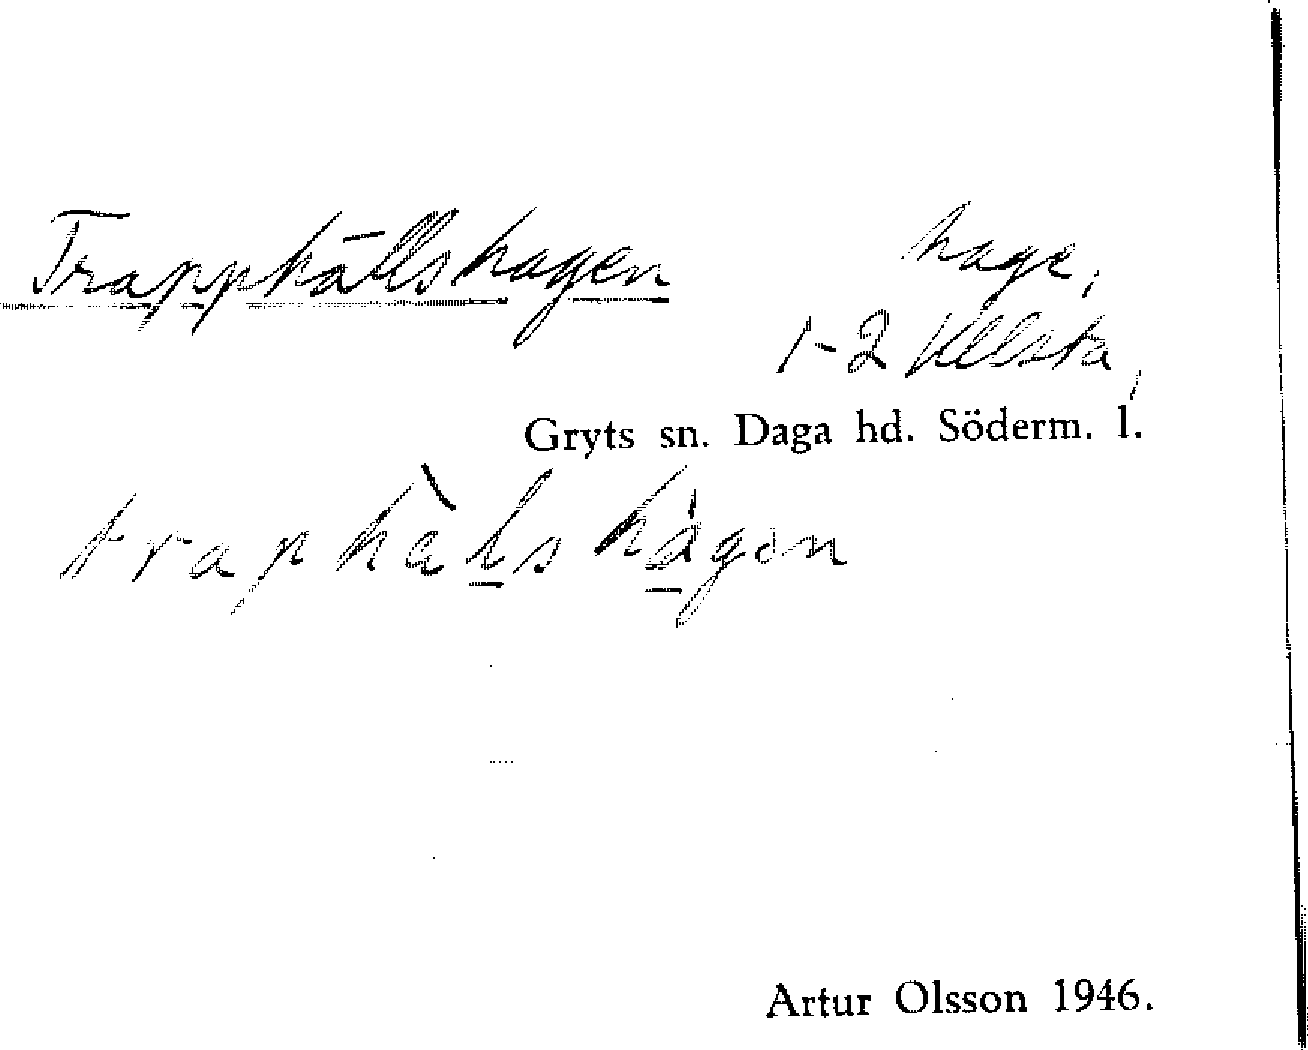 Trapphällshagen hage,
1-2 Ullsta,
Gryts sn. Daga hd. Söderm. l.
Artur Olsson 1946.